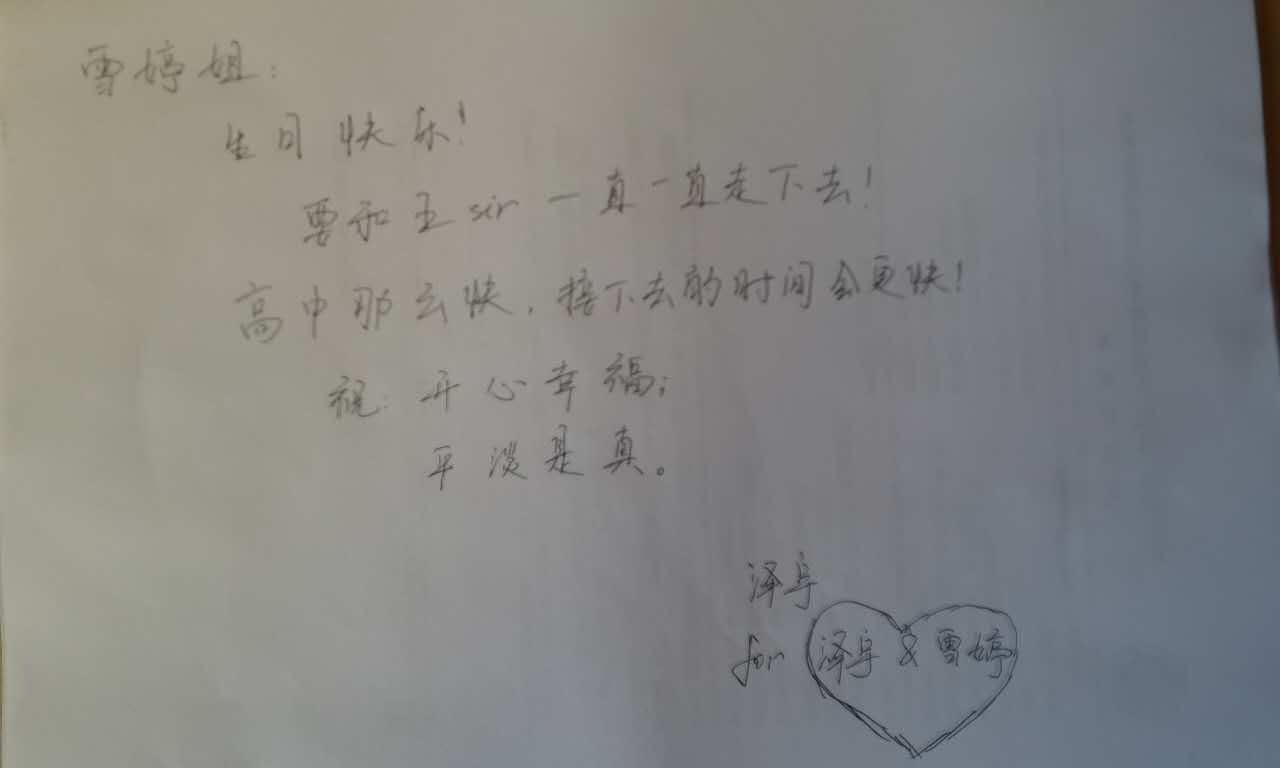 雪婷姐：
生日快乐！
要和王sir一直一直走下去！
高中那么快，接下去的时间会更快！
祝：开心幸福；
平淡是真。
泽阜
for 泽阜 & 雪婷